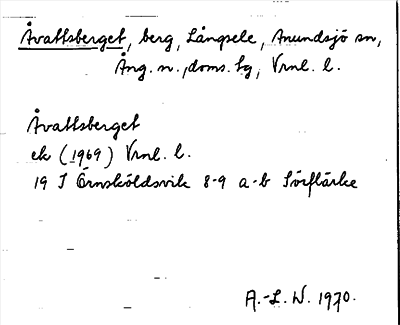 Åvattsberget, berg, Långsele, Anundsjö sn,
Ång. n., doms. lg, Vrnl. l.
Åvattsberget
ek (1969) Vrnl. l.
19 I Örnsköldsvik 8-9 a-b Sörflärke
A.-L. W. 1970.